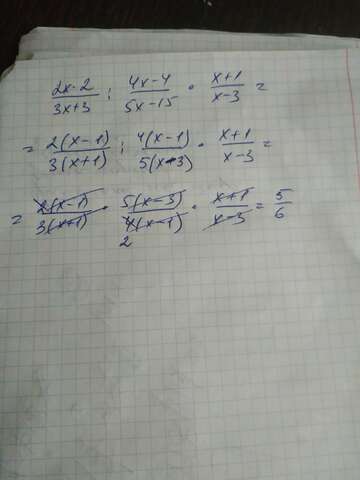 (2x-2)/(3x+3) : (4x-4)/(5x-15) · (x+1)/(x-3) =
= 2(x-1)/3(x+1) : 4(x-1)/5(x-3) · (x+1)/(x-3) =
= 2(x-1)/3(x+1) · 5(x-3)/4(x-1) · (x+1)/(x-3) = 5/6
2